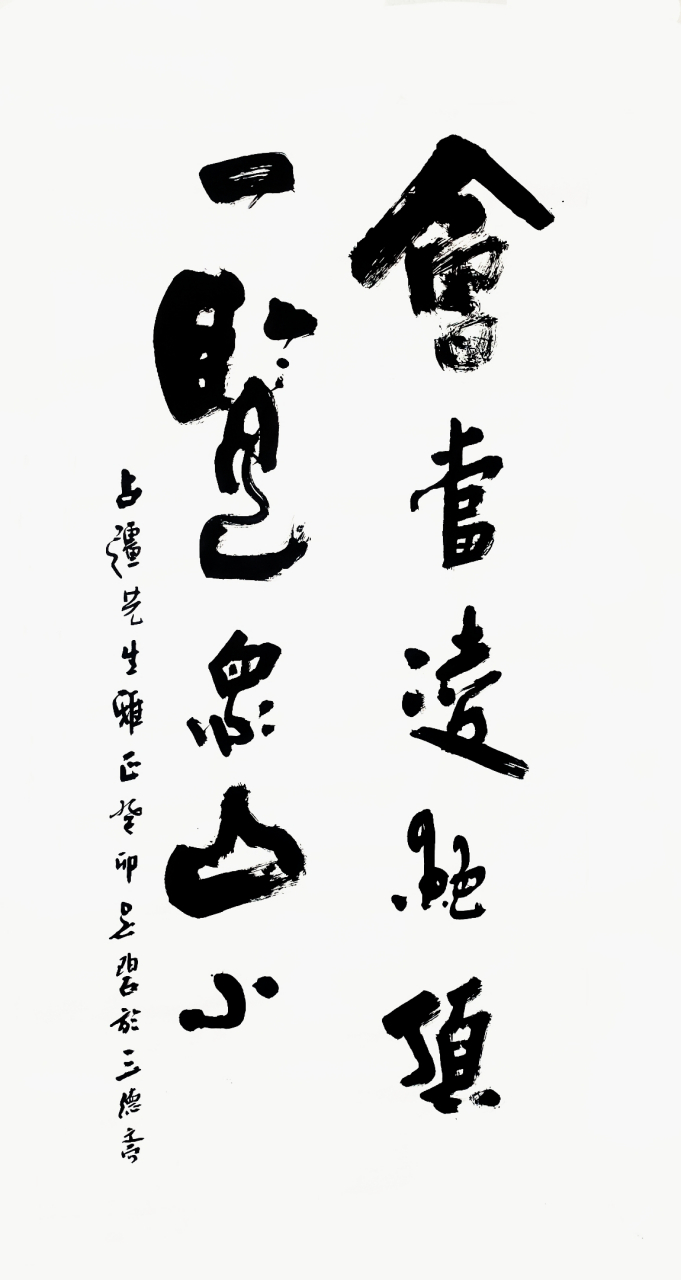 會當凌絕頂
一覽眾山小
占疆先生雅正癸卯吳碧於三德齋